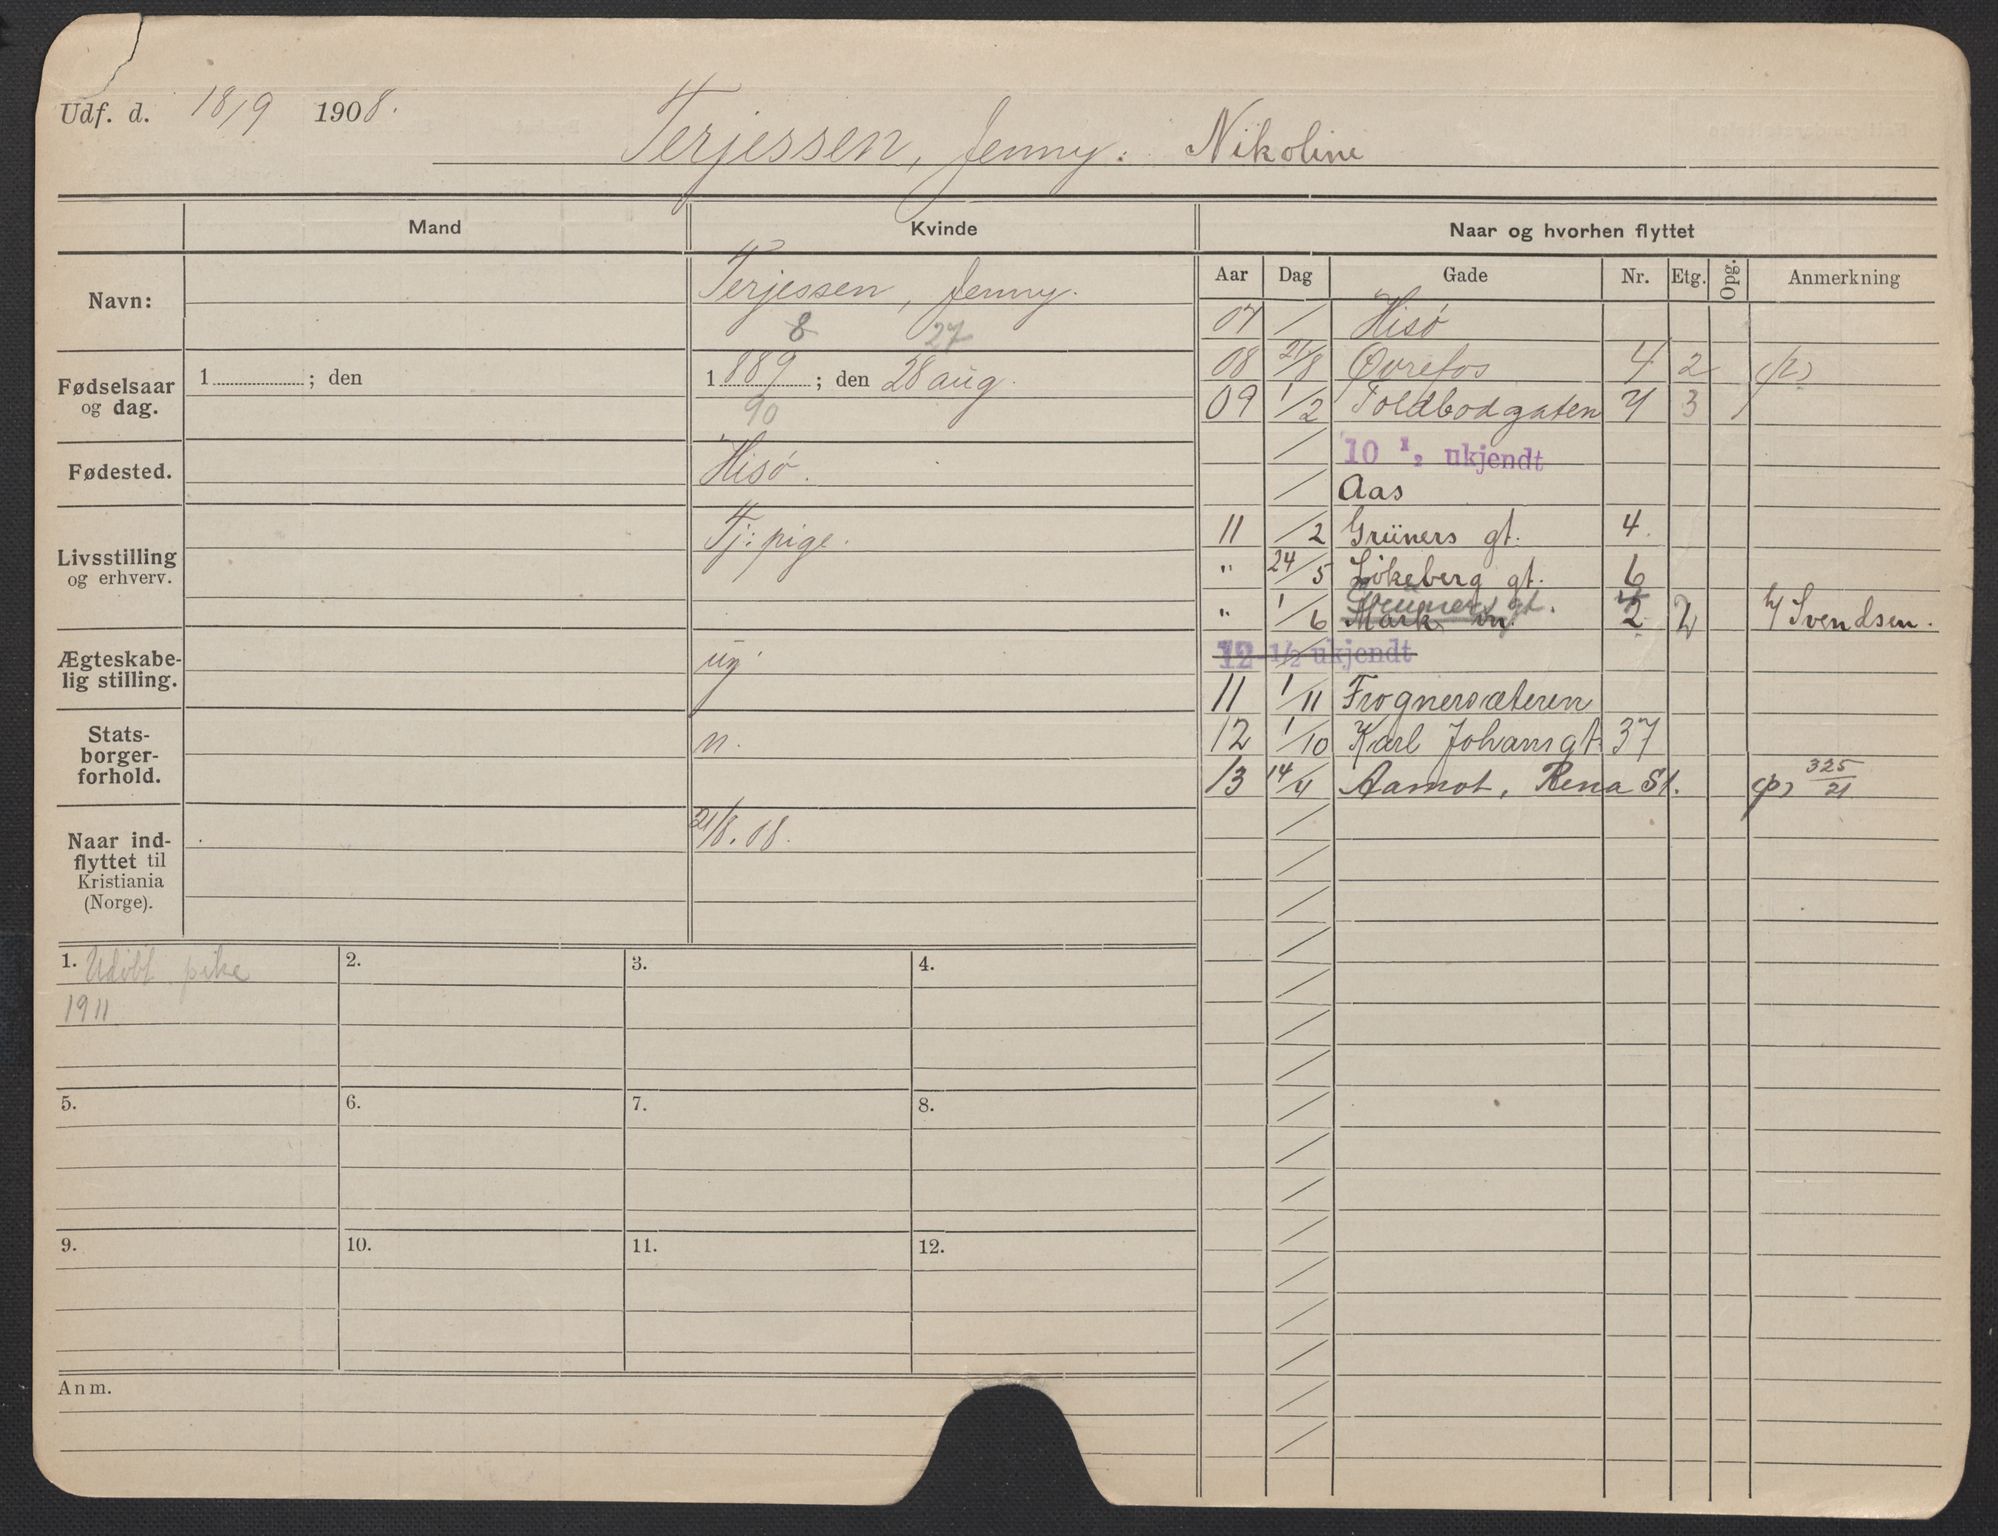 Udf. d. 18/9 1908.
Terjessen, Jenny. Nikoline
Mand
Kvinde
Naar og hvorhen flyttet
Aar Dag Gade Nr. Etg. Opg. Anmerkning
Navn:
Terjessen, Jenny.
8 27
Fødselsaar og dag.
1 ; den
1889 ; den 28 aug.
90
Fødested.
Hisø.
Livsstilling og erhverv.
Tj: pige.
Ægteskabelig stilling.
ug.
Statsborgerforhold.
n.
Naar indflyttet til Kristiania (Norge).
21/8. 08.
07 / Hisø
08 21/8 Øvrefos 4 2
09 1/2 Toldbodgaten 7 3
10 1/2 ukjendt
/ Aas
11 /2 Grüners gt. 4.
" 24/5 Løkeberg gt. 6
Grüners gt.
" 1/6 Mark vn 2 2 h/ Svendsen.
12 1/2 ukjendt
11 1/11 Frognersæteren
12 1/10 Karl Johansgt. 37
13 14/4 Aamot, Rena St. (p) 325/21
1. Udøbt pike
1911
2.
3.
4.
5.
6.
7.
8.
9.
10.
11.
12.
Anm.